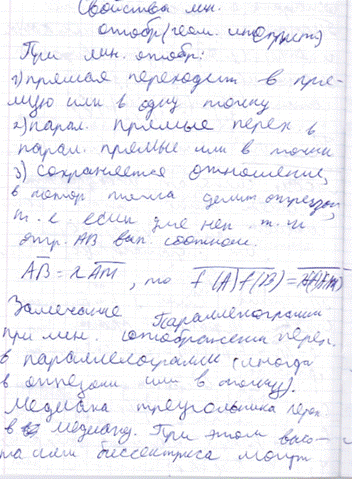 Свойства лин.
отобр. (геом. интерпрет)
При лин. отобр:
1) прямая переходит в пря-
мую или в одну точку
2) парал. прямые перех в
парал. прямые или в точки
3) сохраняется отношение,
в котор точка делит отрезок,
т. е. если для нек. т. М
отр. AB вып. соотнош.
AB = λ AM , то f(A)f(B) =
Замечание Параллелограмм
при лин. отображении перех.
в параллелограмм (иногда
в отрезок или в точку).
Медиана треугольника перех
в медиану. При этом высо-
та или биссектриса могут